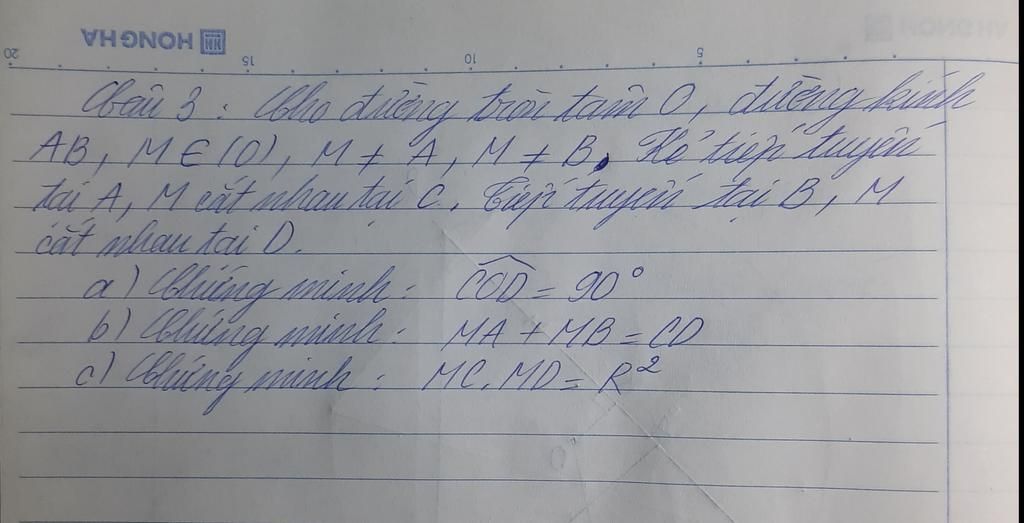 HONG HA
HONG HA
20 15 10 5
Câu 3: Cho đường tròn tâm O, đường kính
AB, M ∈ (O), M ≠ A, M ≠ B. Kẻ tiếp tuyến
tại A, M cắt nhau tại C. Tiếp tuyến tại B, M
cắt nhau tại D.
a) Chứng minh: \widehat{COD} = 90°
b) Chứng minh: MA + MB = CD
c) Chứng minh: MC. MD = R²